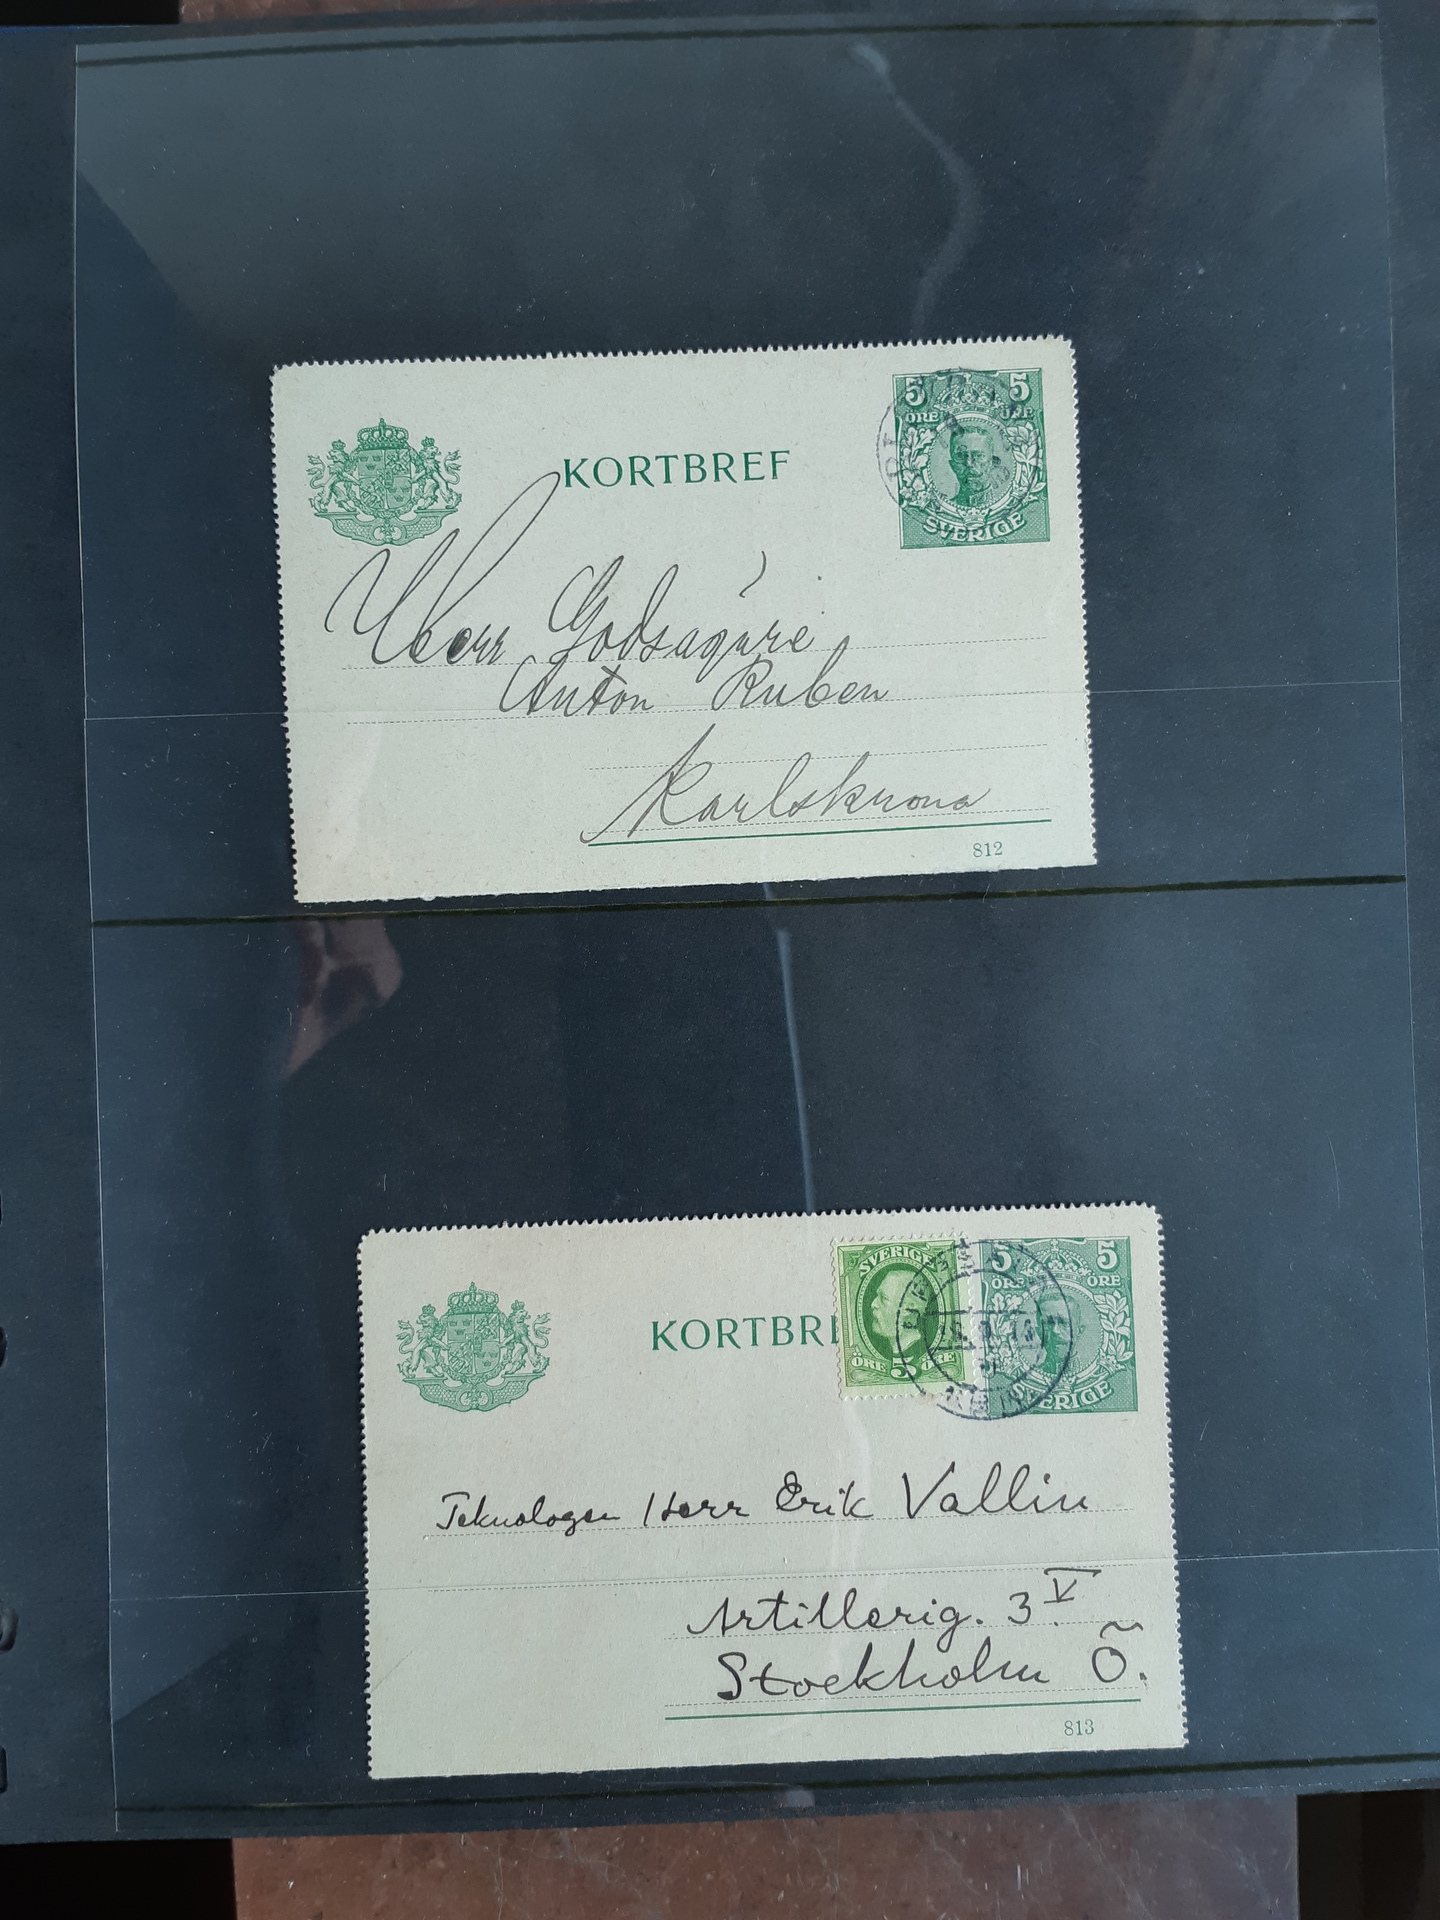 5 5
ÖRE ÖRE
SVERIGE
KORTBREF
Herr Godsägare
Anton Ruben
Karlskrona
812
SVERIGE
ÖRE 5 ÖRE
5 5
ÖRE ÖRE
SVERIGE
KORTBRE
Teknologen Herr Erik Vallin
Artillerig. 3 V
Stockholm Ö.
813